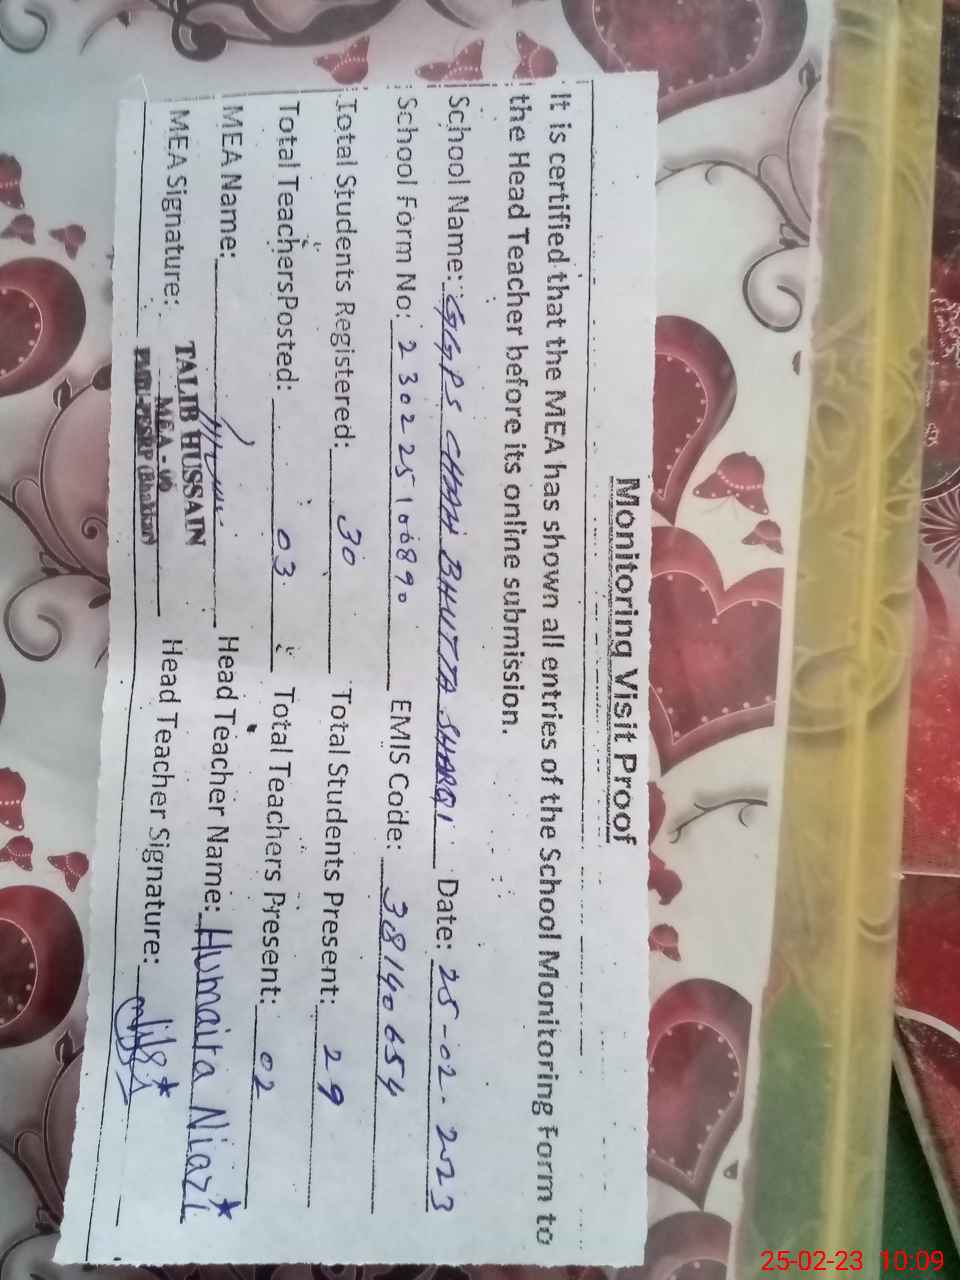 Monitoring Visit Proof
It is certified that the MEA has shown all entries of the School Monitoring Form to
the Head Teacher before its online submission.
School Name: GGPS CHAH BHUTTA SHARQI Date: 25-02-2023
School Form No: 230225100890 EMIS Code: 38140654
Total Students Registered: 30 Total Students Present: 29
Total Teachers Posted: 03 Total Teachers Present: 02
MEA Name: Head Teacher Name: Humaira Niazi
MEA Signature: Head Teacher Signature:
TALIB HUSSAIN
MEA -
(Bhakkar)
25-02-23 10:09